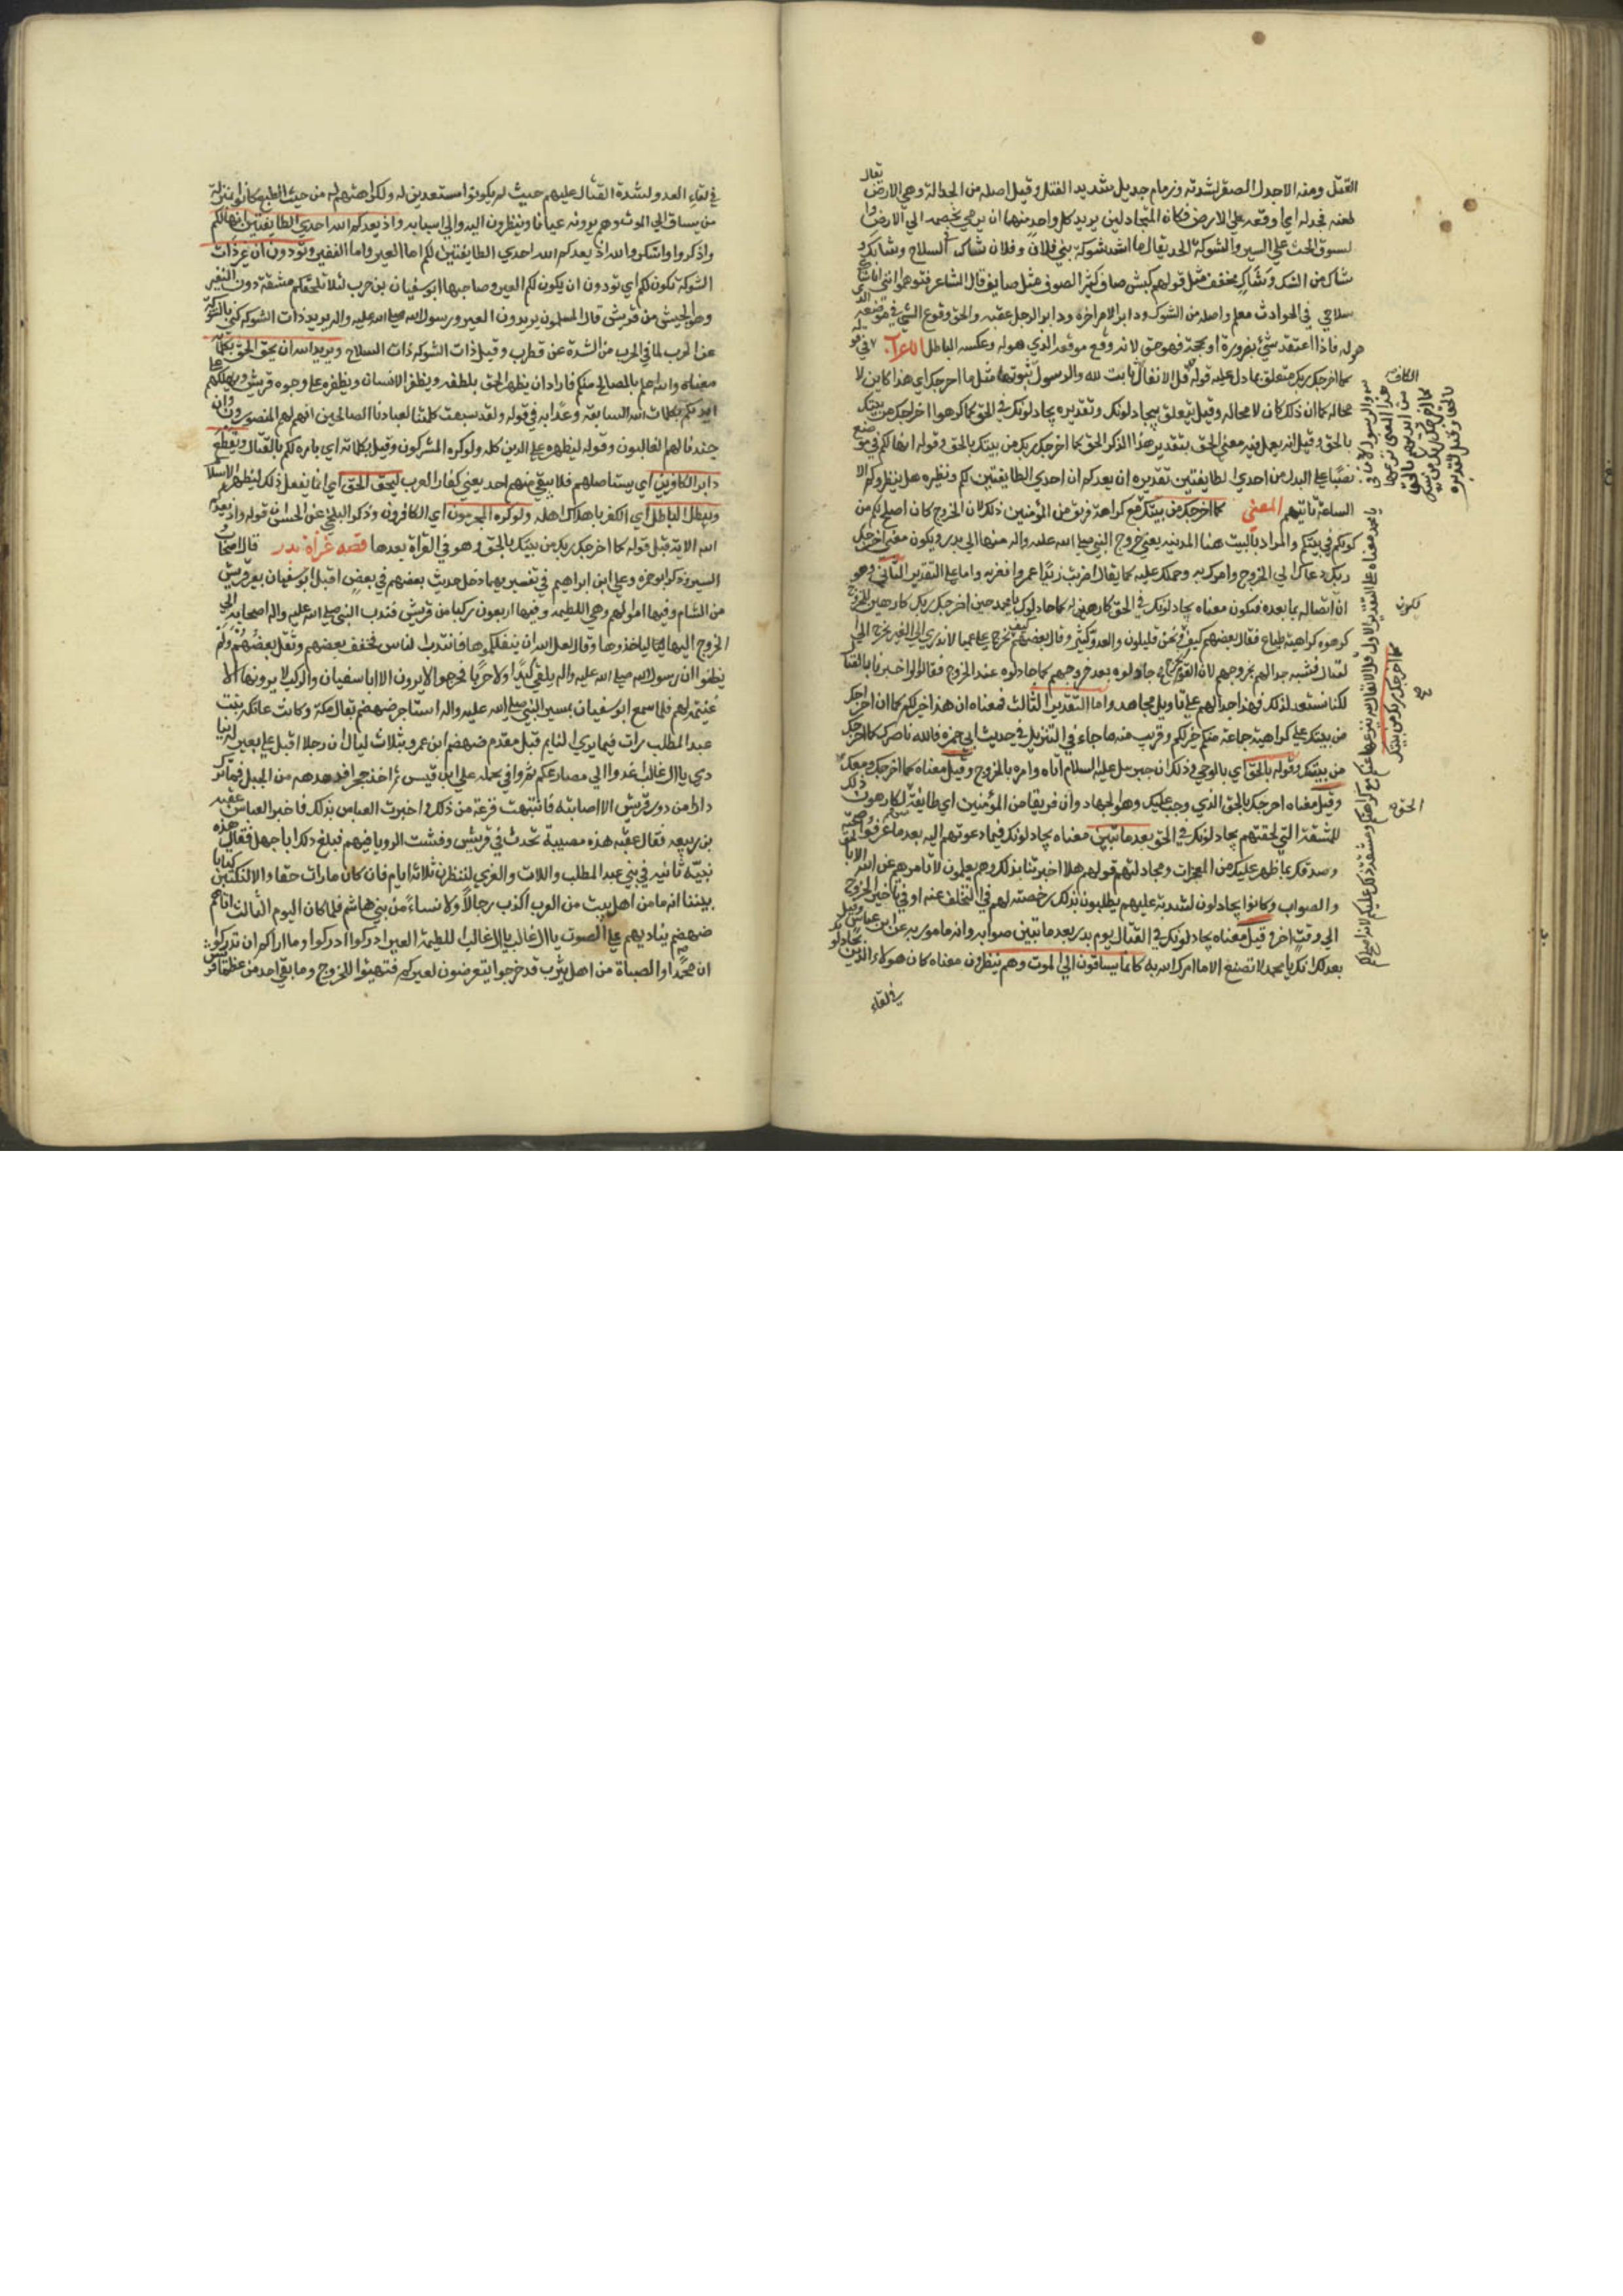 القتل ومنه الاجدل الصقر لشدته وزمام جديل شديد الفتل وقيل اصله من الجدالة وهي الارض يقال
طعنه فجدله اي اوقعه على الارض فكان المتجادلين يريد كل واحد منهما ان يرمي بخصمه الي الارض وا
لسوق الحث على السير والشوكة الحد يقال ما اشد شوكة بني فلان وفلان شاك في السلاح وشايك و
شاك من الشك وشاك مخفف مثل قولهم كبش صاف كثير الصوف مثل صايف قال الشاعر فتوهموني انني انا ذاكم شاك
سلاحي في الحوادث معلم واصله من الشوك ودابر الامر اخره ودابر الرجل عقبه والحق وقوع الشي في موضعه الذي
هو له فاذا اعتقد شي بضرورة او بحجة فهو حق لانه وقع موقعه الذي هو له وعكسه الباطل الاعراب
كما اخرجك ربك متعلق بما دل عليه قوله قل الانفال ثابت لله والرسول ثبوتها مثل ما اخرجك اي هذا كاين لا
محالة كما ان ذلك كان لا محالة وقيل يتعلق بيجادلونك وتقديره يجادلونك في الحق كما كرهوا اخراجك من بيتك
بالحق وقيل انه يعمل فيه معني الحق بتقدير هذا الذكر الحق كما اخرجك ربك من بيتك بالحق وقوله انها لكم في موضع
نصبا على البدل من احدي الطايفتين تقديره ان يعدكم ان احدي الطايفتين لكم ونظيره هل ينظرون الا
الساعة تاتيهم المعني كما اخرجك من بيتك مع كراهة فريق من المؤمنين ذلك لان الخروج كان اصلح لكم من
كونكم في بيتكم والمراد بالبيت هنا المدينة يعني خروج النبي صلى الله عليه واله منها الي بدر ويكون معني اخرجك
ربك دعاك الي الخروج وامرك به وحملك عليه كما يقال اضربت زيدا عمرا فضربه واما على التقدير الثاني وهو
ان اتصاله بما بعده فيكون معناه يجادلونك في الحق كارهين له كما جادلوك يا محمد حين اخرجك ربك كارهين للخروج
كرهوه كراهية طباع فقال بعضهم كيف نخرج ونحن قليلون والعدو كثير وقال بعضهم كيف نخرج على عميا لا ندري الي العير نخرج ام الي
القتال فشبه جدالهم بخروجهم لان القوم جادلوه بعد خروجهم كما جادلوه عند الخروج فقالوا لو اخبرتنا بالقتال
لكنا نستعد لذلك فهذا جدالهم على تاويل مجاهد واما التقدير الثالث فمعناه ان هذا خير لكم كما ان اخراجك
من بيتك على كراهية جماعة منكم خير لكم وقريب منه ما جاء في التنزيل في حديث ابي حمزة فالله ناصرك كما اخرجك
من بيتك وقوله بالحق اي بالوحي وذلك ان جبريل عليه السلام اتاه وامره بالخروج وقيل معناه كما اخرجك ومعك
وقيل معناه اخرجك بالحق الذي وجب عليك وهو الجهاد وان فريقا من المؤمنين اي طايفة لكارهون ذلك
للمشقة التي لحقتهم يجادلونك في الحق بعد ما تبين معناه يجادلونك فيما دعوتهم اليه بعد ما عرفوا صحته
وصدقك بما ظهر عليك من المعجزات ومجادلتهم قولهم هلا اخبرتنا بذلك وهم يعلمون لا تامرهم عن الله الا بالحق
والصواب وكانوا يجادلون لشدته عليهم يطلبون بذلك رخصة لهم في التخلف عنه او في تاخير الخروج
الي وقت اخر وقيل معناه يجادلونك في القتال يوم بدر بعد ما تبين صوابه وانه مامور به عن ابن عباس وقيل
بعدك انك يا محمد لا تصنع الا ما امرك الله به كانما يساقون الي الموت وهم ينظرون معناه كان هولاء الذين يجادلونك
في لقاء
في لقاء العدو لشدة القتال عليهم حيث لم يكونوا مستعدين له ولكراهتهم له من حيث الطبع كانوا بمنزلة
من يساق الي الموت وهم يرونه عيانا وينظرون اليه والي اسبابه واذ يعدكم الله احدي الطايفتين انها لكم
واذكروا واشكروا الله اذ يعدكم الله احدي الطايفتين لكم اما العير واما النفير وتودون ان غير ذات
الشوكة تكون لكم اي تودون ان يكون لكم العير وصاحبها ابو سفيان بن حرب لئلا تلحقكم مشقة دون النفير
وهو الجيش من قريش قال المسلمون يريدون العير ورسول الله صلى الله عليه واله يريد ذات الشوكة كني بالشوكة
عن الحرب لما في الحرب من الشدة عن قطرب وقيل ذات الشوكة ذات السلاح ويريد الله ان يحق الحق بكلماته
معناه والله اعلم بالمصالح منكم فاراد ان يظهر الحق بلطفه ويظفر الانسان ويظفره على وجوه قريش ويهلكهم على
ايديكم بكلمات الله السابقة وعداته في قوله ولقد سبقت كلمتنا لعبادنا الصالحين انهم لهم المنصورون وان
جندنا لهم الغالبون وقوله ليظهره على الدين كله ولو كره المشركون وقيل بكلماته اي بامره لكم بالقتال ويقطع
دابر الكافرين اي يستاصلهم فلا يبقي منهم احد يعني كفار العرب ليحق الحق اي انما يفعل ذلك ليظهر الاسلام
ويبطل الباطل اي الكفر باهلاك اهله ولو كره المجرمون اي الكافرون وذكر البلخي عن الحسن قوله واذ يعدكم
الله الاية قبل قوله كما اخرجك ربك من بيتك بالحق وهو في القراة بعدها قصة غزاة بدر قال اصحاب
السير وذكر ابو حمزة وعلي ابن ابراهيم في تفسيريهما دخل حديث بعضهم في بعض اقبل ابو سفيان بعير قريش
من الشام وفيها اموالهم وهي اللطيمة وفيها اربعون ركبا من قريش فندب النبي صلى الله عليه واله اصحابه الي
الخروج اليها لياخذوها وقال لعل الله ان ينفلكموها فانتدب الناس فخفف بعضهم وثقل بعضهم ولم
يظنوا ان رسول الله صلى الله عليه واله يلقي كيدا ولا حربا فخرجوا لا يرون الا ابا سفيان والركب لا يرونها الا
غنيمة لهم فلما سمع ابو سفيان بمسير النبي صلى الله عليه واله استاجر ضمضم بقال مكة وكانت عاتكة بنت
عبد المطلب رات فيما يري النايم قبل مقدم ضمضم ابن عمرو بثلاث ليال ان رجلا اقبل على بعير له ينا
دي يا ال غالب اغدوا الي مصارعكم ثم وافي بجمله على ابي قيس ثم اخذ حجرا فدهدهه من الجبل فما ترك
دارا من دور قريش الا اصابته فانتبهت فزعة من ذلك واخبرت العباس بذلك فاخبر العباس عتبة
بن ربيعة فقال عتبة هذه مصيبة تحدث في قريش وفشت الرويا فيهم فبلغ ذلك ابا جهل فقال هذه
نبية ثانية في بني عبد المطلب واللات والعزي لننظرن ثلاثة ايام فان كان ما رات حقا والا لنكتبن كتابا
بيننا انه ما من اهل بيت من العرب اكذب رجالا ولا نساء من بني هاشم فلما كان اليوم الثالث اتاهم
ضمضم يناديهم باعلى الصوت يا ال غالب يا ال غالب اللطيمة العير ادركوا ادركوا وما اراكم ان تدركوا
ان محمدا والصباة من اهل يثرب قد خرجوا يتعرضون لعيركم فتهيئوا للخروج وما بقي احد من عظما قريش